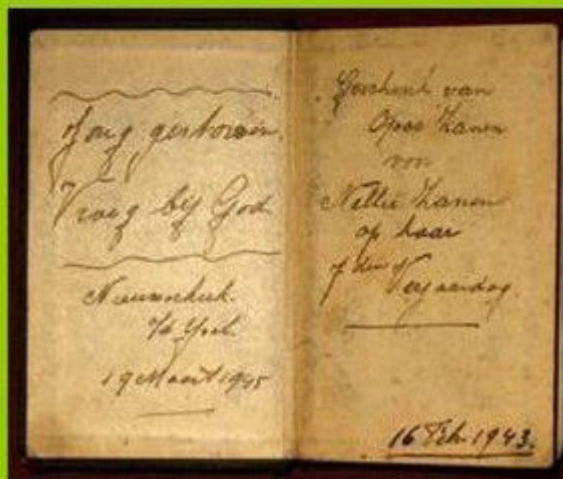 Jong gestorven.
Vroeg bij God
Nieuwerkerk
a/d Ysel
19 Maart 1945
Geschenk van
Opoe Zanen
voor
Nellie Zanen
op haar
Verjaardag.
16 Feb. 1943.